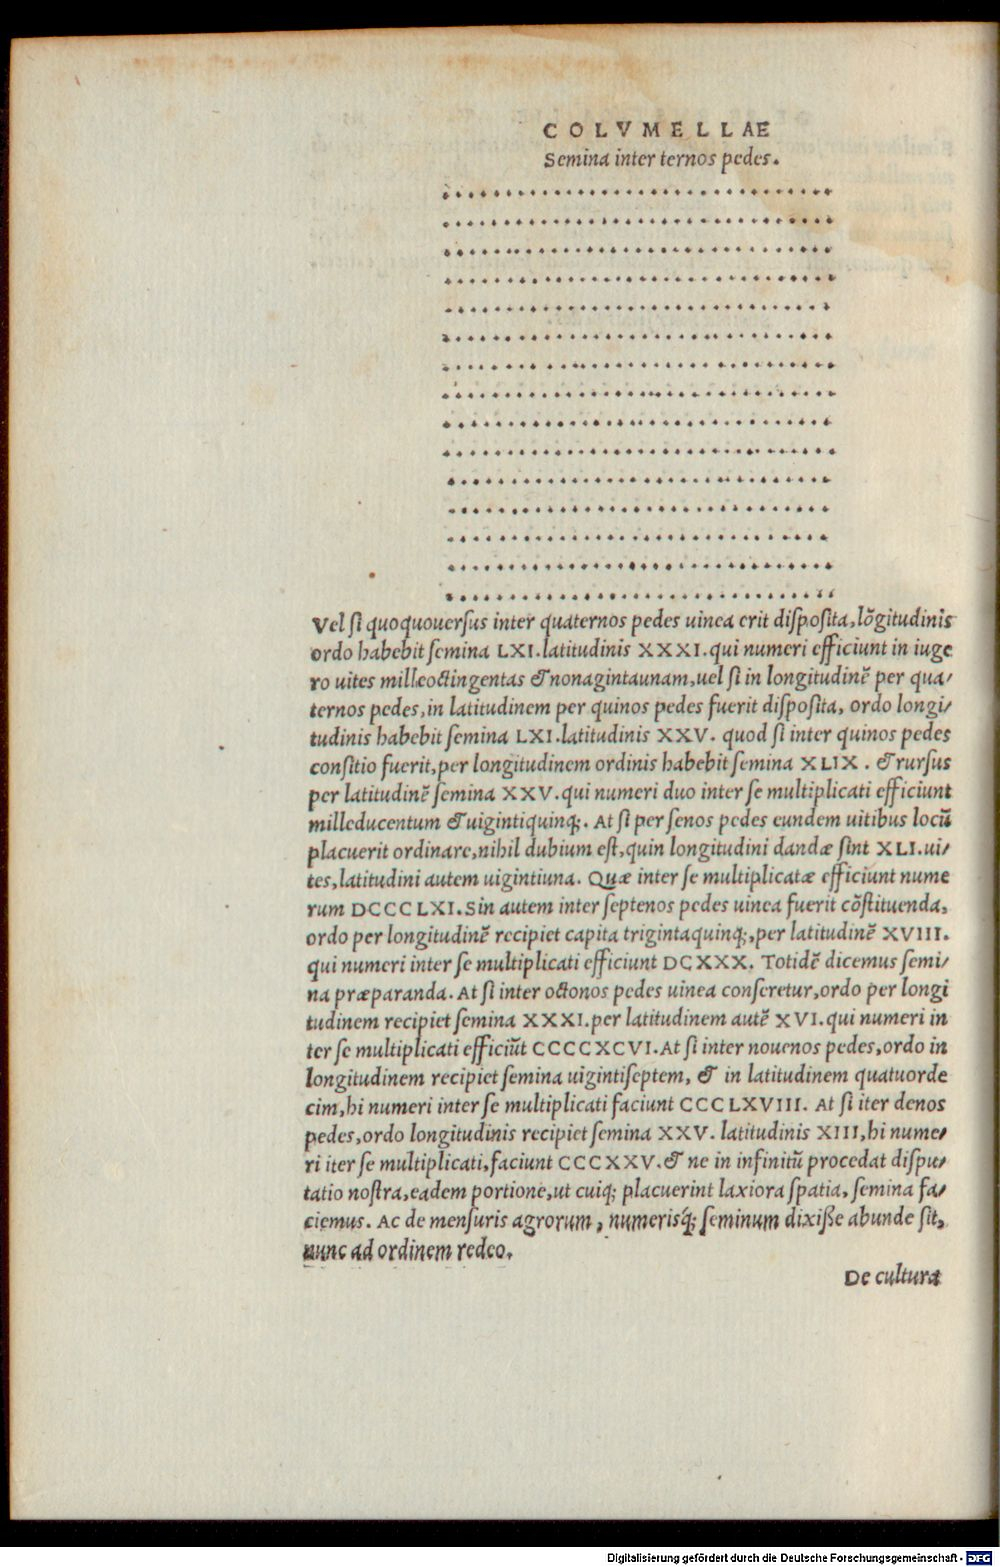 COLVMELLAE
Semina inter ternos pedes.
Vel si quoquouersus inter quaternos pedes uinea erit disposita, lõgitudinis
ordo habebit semina LXI. latitudinis XXXI. qui numeri efficiunt in iuge
ro uites milleoctingentas & nonagintaunam, uel si in longitudinẽ per qua/
ternos pedes, in latitudinem per quinos pedes fuerit disposita, ordo longi/
tudinis habebit semina LXI. latitudinis XXV. quod si inter quinos pedes
consitio fuerit, per longitudinem ordinis habebit semina XLIX. & rursus
per latitudinẽ semina XXV. qui numeri duo inter se multiplicati efficiunt
milleducentum & uigintiquinq;. At si per senos pedes eundem uitibus locũ
placuerit ordinare, nihil dubium est, quin longitudini dandæ sint XLI. ui/
tes, latitudini autem uigintiuna. Quæ inter se multiplicatæ efficiunt nume
rum DCCCLXI. Sin autem inter septenos pedes uinea fuerit cõstituenda,
ordo per longitudinẽ recipiet capita trigintaquinq;, per latitudinẽ XVIII.
qui numeri inter se multiplicati efficiunt DCXXX. Totidẽ dicemus semi/
na præparanda. At si inter octonos pedes uinea conseretur, ordo per longi
tudinem recipiet semina XXXI. per latitudinem autẽ XVI. qui numeri in
ter se multiplicati efficiũt CCCCXCVI. At si inter nouenos pedes, ordo in
longitudinem recipiet semina uigintiseptem, & in latitudinem quatuorde
cim, hi numeri inter se multiplicati faciunt CCCLXVIII. At si iter denos
pedes, ordo longitudinis recipiet semina XXV. latitudinis XIII, hi nume/
ri iter se multiplicati, faciunt CCCXXV. & ne in infinitũ procedat dispu/
tatio nostra, eadem portione, ut cuiq; placuerint laxiora spatia, semina fa/
ciemus. Ac de mensuris agrorum, numerisq́; seminum dixisse abunde sit,
nunc ad ordinem redeo.
De cultura
Digitalisierung gefördert durch die Deutsche Forschungsgemeinschaft - DFG